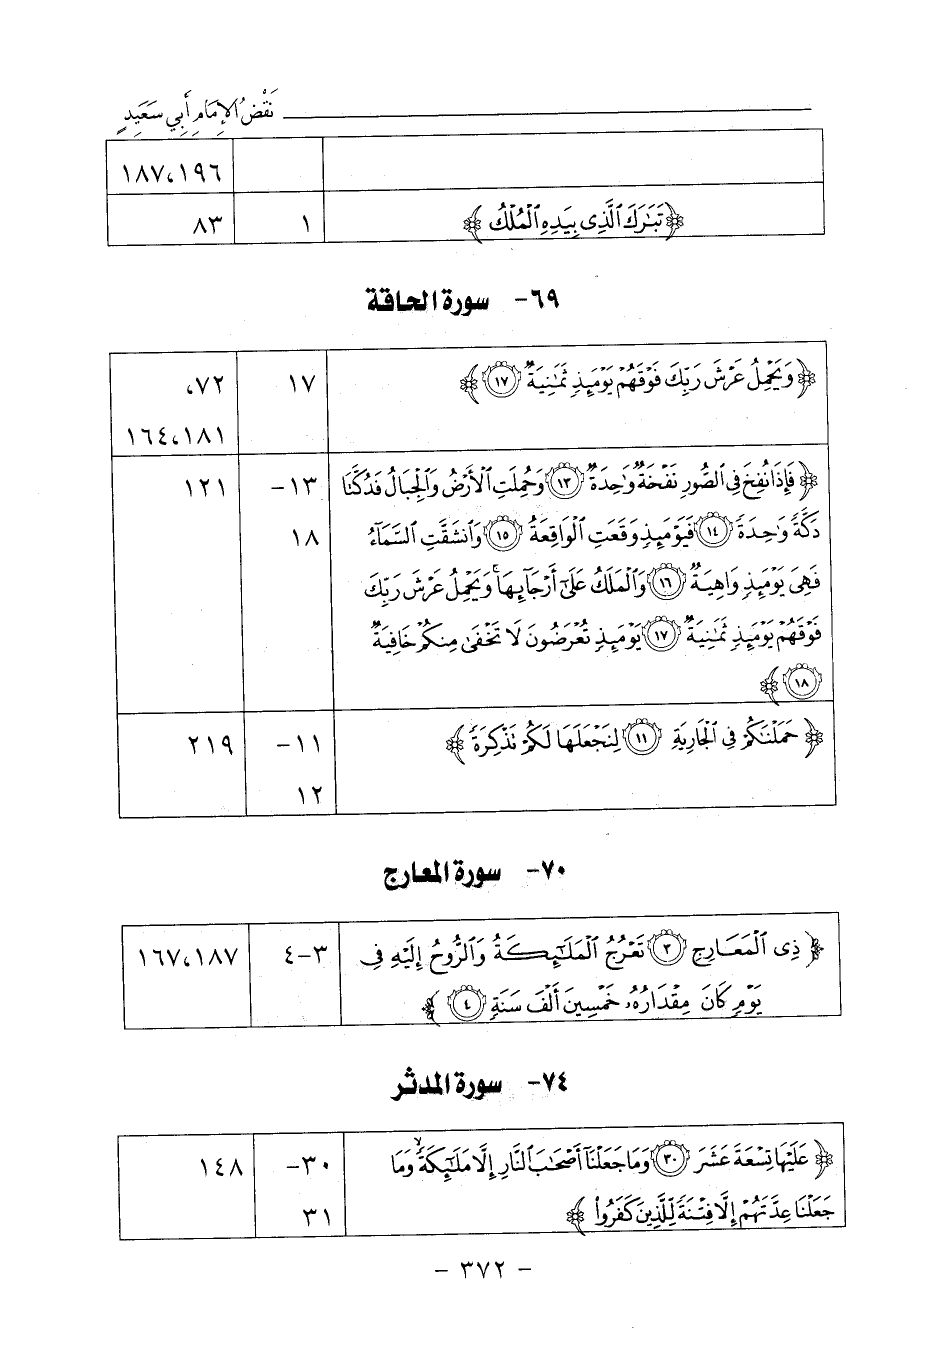 نَقْضُ الإِمَامِ أَبِي سَعِيدٍ
١٨٧،١٩٦
﴿تَبَٰرَكَ ٱلَّذِى بِيَدِهِ ٱلْمُلْكُ﴾ ١ ٨٣
٦٩- سورة الحاقة
﴿وَيَحْمِلُ عَرْشَ رَبِّكَ فَوْقَهُمْ يَوْمَئِذٍ ثَمَٰنِيَةٌ ١٧﴾ ١٧ ٧٢،
١٦٤،١٨١
﴿فَإِذَا نُفِخَ فِى ٱلصُّورِ نَفْخَةٌ وَٰحِدَةٌ ١٣ وَحُمِلَتِ ٱلْأَرْضُ وَٱلْجِبَالُ فَدُكَّتَا ١٣- ١٢١
دَكَّةً وَٰحِدَةً ١٤ فَيَوْمَئِذٍ وَقَعَتِ ٱلْوَاقِعَةُ ١٥ وَٱنشَقَّتِ ٱلسَّمَآءُ ١٨
فَهِىَ يَوْمَئِذٍ وَاهِيَةٌ ١٦ وَٱلْمَلَكُ عَلَىٰٓ أَرْجَآئِهَا ۚ وَيَحْمِلُ عَرْشَ رَبِّكَ
فَوْقَهُمْ يَوْمَئِذٍ ثَمَٰنِيَةٌ ١٧ يَوْمَئِذٍ تُعْرَضُونَ لَا تَخْفَىٰ مِنكُمْ خَافِيَةٌ
١٨﴾
﴿حَمَلْنَٰكُمْ فِى ٱلْجَارِيَةِ ١١ لِنَجْعَلَهَا لَكُمْ تَذْكِرَةً﴾ ١١- ٢١٩
١٢
٧٠- سورة المعارج
﴿ذِى ٱلْمَعَارِجِ ٣ تَعْرُجُ ٱلْمَلَٰٓئِكَةُ وَٱلرُّوحُ إِلَيْهِ فِى ٣-٤ ١٦٧،١٨٧
يَوْمٍ كَانَ مِقْدَارُهُۥ خَمْسِينَ أَلْفَ سَنَةٍ ٤﴾
٧٤- سورة المدثر
﴿عَلَيْهَا تِسْعَةَ عَشَرَ ٣٠ وَمَا جَعَلْنَآ أَصْحَٰبَ ٱلنَّارِ إِلَّا مَلَٰٓئِكَةً ۙ وَمَا ٣٠- ١٤٨
جَعَلْنَا عِدَّتَهُمْ إِلَّا فِتْنَةً لِّلَّذِينَ كَفَرُوا۟﴾ ٣١
- ٣٧٢ -